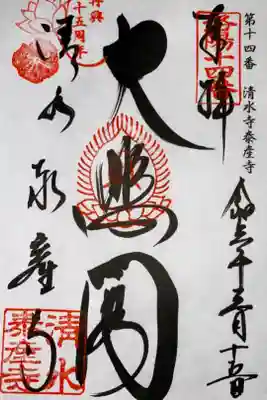 第十四番　清水寺泰産寺
奉拝
洛陽十四番
大悲閣
十五周年
清水泰産寺
清水
泰産寺